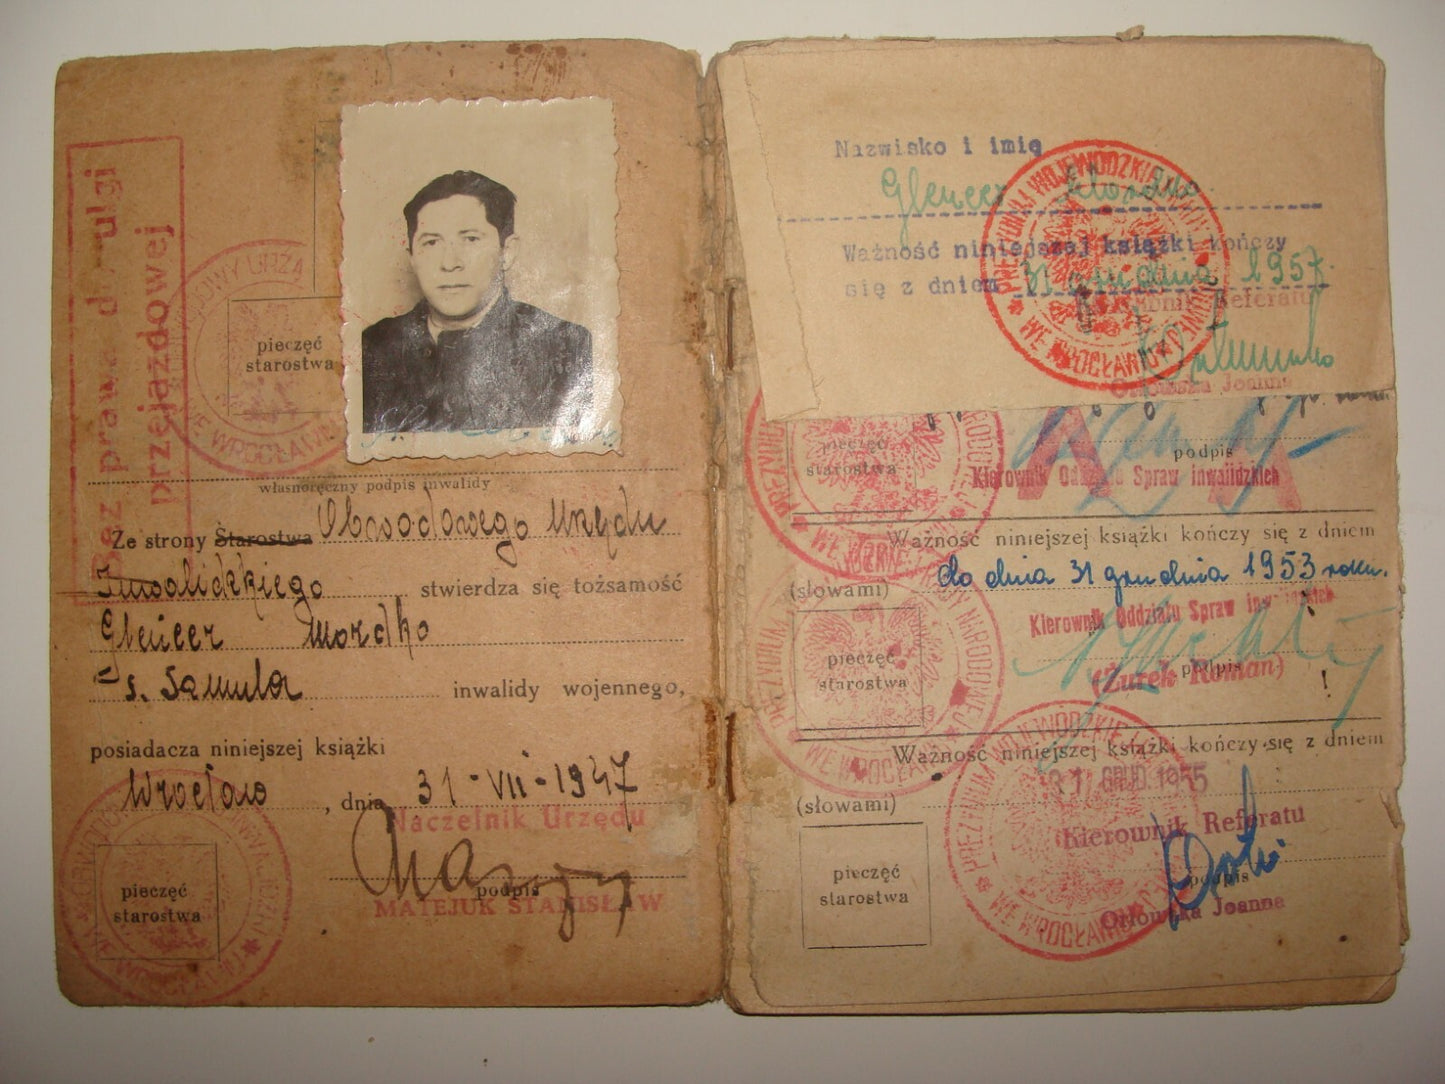 Bez prawa do ulgi
przejazdowej
pieczęć
starostwa
własnoręczny podpis inwalidy
Ze strony Starostwa Obwodowego Urzędu
Inwalidzkiego stwierdza się tożsamość
Glencer Mordko
s. Samula inwalidy wojennego,
posiadacza niniejszej książki
Wrocław, dnia 31-VII-1947
Naczelnik Urzędu
podpis
MATEJUK STANISŁAW
pieczęć
starostwa
Nazwisko i imię
Glencer Mordko
Ważność niniejszej książki kończy
się z dniem 31 grudnia 1957.
Kierownik Referatu
Orłowska Joanna
PREZYDIUM WOJEWÓDZKIEJ RADY NARODOWEJ WE WROCŁAWIU
pieczęć
starostwa
podpis
Kierownik Oddziału Spraw inwalidzkich
Ważność niniejszej książki kończy się z dniem
do dnia 31 grudnia 1953 roku.
(słowami)
Kierownik Oddziału Spraw inwalidzkich
pieczęć
starostwa
podpis
(Żurek Roman)
Ważność niniejszej książki kończy się z dniem
31 GRUD. 1955
(słowami)
Kierownik Referatu
pieczęć
starostwa
podpis
Orłowska Joanna